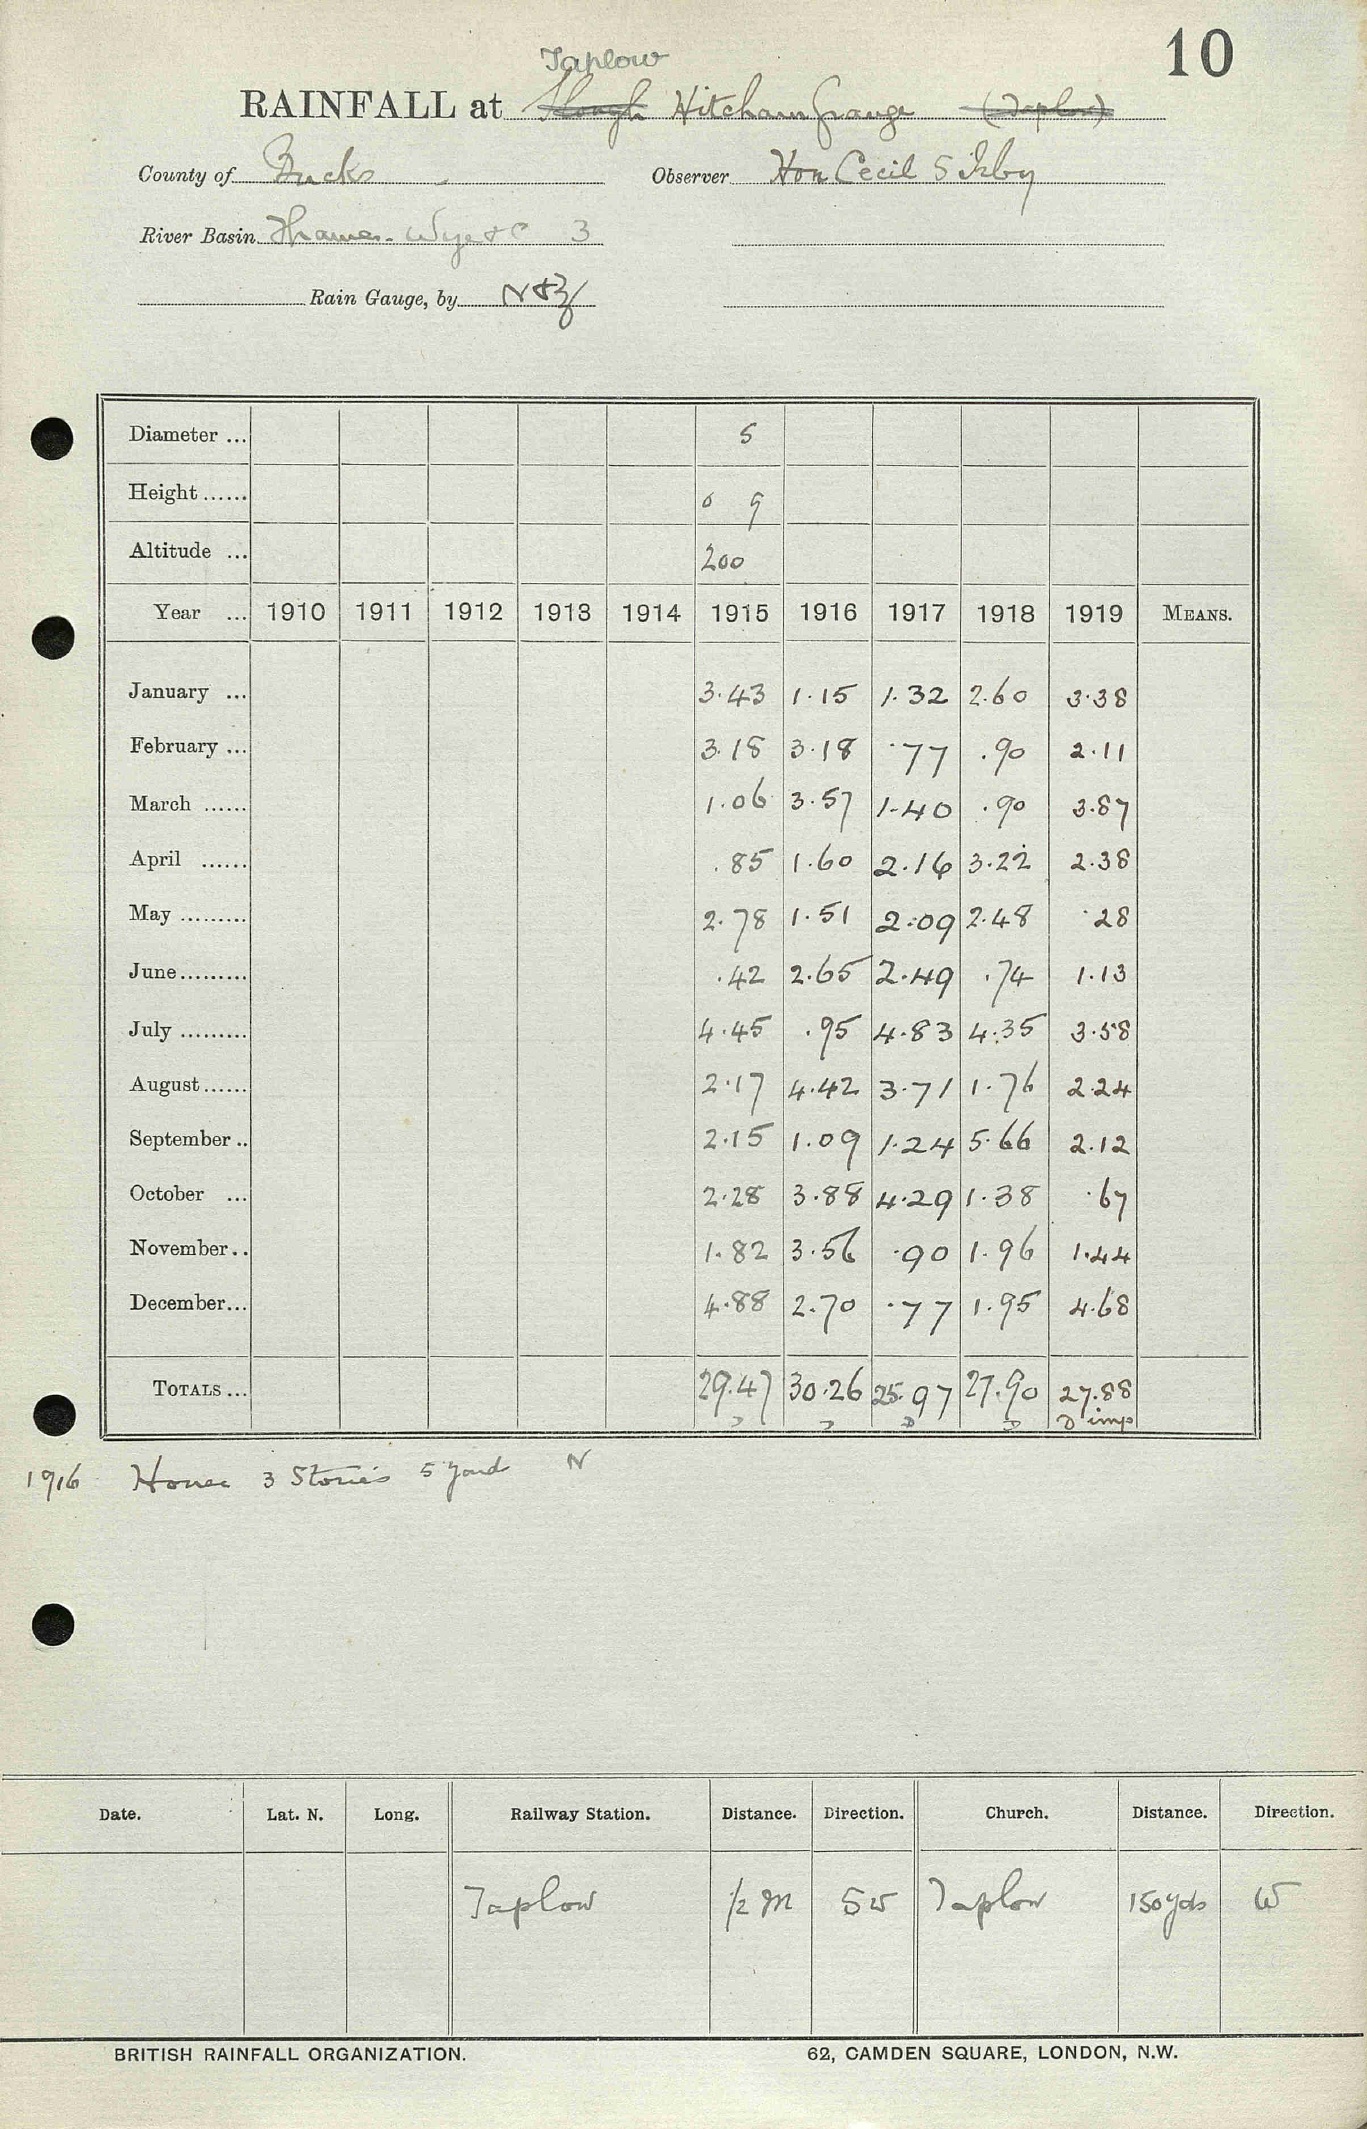 10
Taplow
RAINFALL at Slough Hitcham Grange (Taplow)
County of Bucks Observer Hon Cecil S Irby
River Basin Thames - Wye &c 3
Rain Gauge, by N&Z
Diameter ... 5
Height ...... 0 9
Altitude ... 200
Year ... 1910 1911 1912 1913 1914 1915 1916 1917 1918 1919 MEANS.
January ... 3.43 1.15 1.32 2.60 3.38
February ... 3.18 3.18 .77 .90 2.11
March ...... 1.06 3.57 1.40 .90 3.87
April ...... .85 1.60 2.16 3.22 2.38
May ......... 2.78 1.51 2.09 2.48 .28
June ......... .42 2.65 2.49 .74 1.13
July ......... 4.45 .95 4.83 4.35 3.58
August ...... 2.17 4.42 3.71 1.76 2.24
September .. 2.15 1.09 1.24 5.66 2.12
October ... 2.28 3.88 4.29 1.38 .67
November .. 1.82 3.56 .90 1.96 1.44
December... 4.88 2.70 .77 1.95 4.68
TOTALS ... 29.47 30.26 25.97 27.90 27.88
D D D D D imp
1916 House 3 Stories 5 yards N
Date. Lat. N. Long. Railway Station. Distance. Direction. Church. Distance. Direction.
Taplow 1/2 m SW Taplow 150 yds W
BRITISH RAINFALL ORGANIZATION. 62, CAMDEN SQUARE, LONDON, N.W.